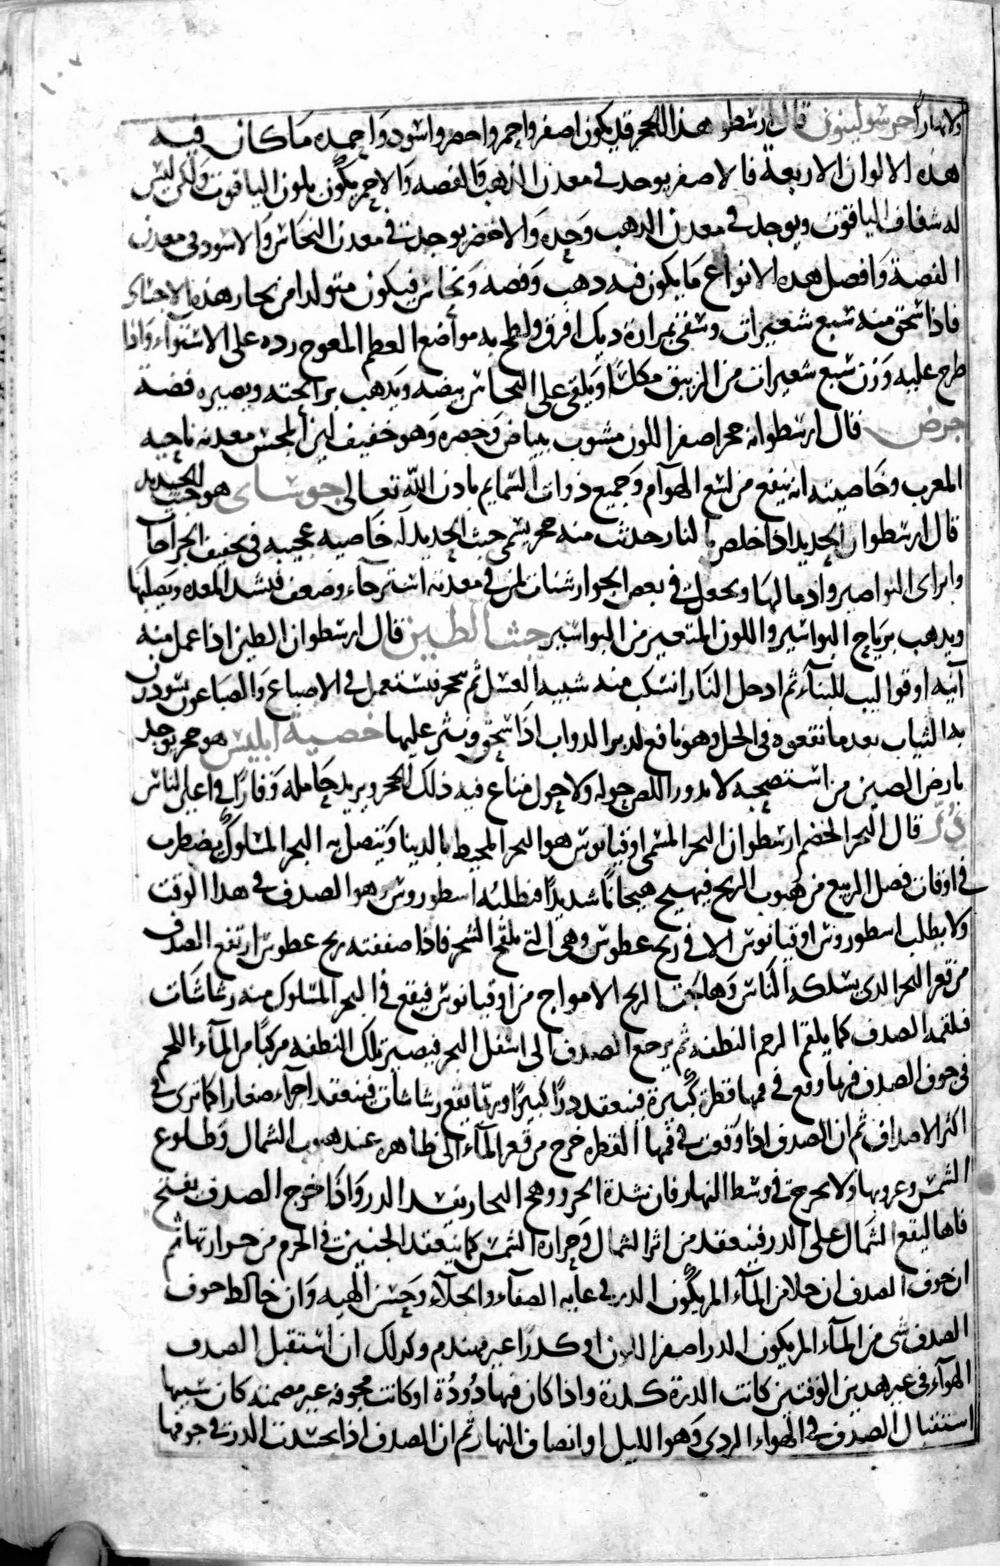 ولا نهارا حرسولينون قال ارسطو هذا الحجر قد يكون اصفر واحمر واخضر واسود واجوده ما كان فيه
هذه الالوان الاربعة فالاصفر يوجد في معدن الذهب والفضه والاحمر يكون بلون الياقوت ولكن ليس
له شفاف الياقوت ويوجد في معدن الذهب وحده والاخضر يوجد في معدن النحاس والاسود في معدن
الفضة وافضل هذه الانواع ما يكون فيه ذهب وفضه ونحاس فيكون متولدا من بخار هذه الاجساد
فاذا سحق منه سبع شعيرات وسقى بمرارة ديك افرق ولطخ به مواضع العظم المعوج رده على الاستواء واذا
طرح عليه وزن سبع شعيرات من الزيبق مكلسا ويلقى على النحاس بيضه ويذهب برايحته ويصيره فضة
حرض قال ارسطو انه حجر اصفر اللون مشوب ببياض وخضره وهو خفيف لين المجس معدنه ناحيه
المغرب وخاصيته انه ينفع من لسع الهوام وجميع ذوات السمايم باذن الله تعالى جوساى هو خبث الحديد
قال ارسطو ان الحديد اذا خلص بالنار حدث منه حجر يسمى خبث الحديد له خاصيه عجيبه في تجفيف الجراحات
وابراى النواصير وادمالها ويجعل في بعض الجوارشنات لمن في معدته استرخاء وضعف فيشد المعده ويصلحها
ويذهب برياح البواسير واللون المتغير من البواسير خبث الطين قال ارسطو ان الطين اذا عمل منه
آنيه او قواليب للبناء ثم ادخل النار انسبك منه شبيه العسل ثم تحجر فيستعمل في الاصباغ والصباغون يسودون
به الثياب بعد ما نقعوه في الخل وهو نافع لدبر الدواب اذا سحق ونثر عليها خصية ابليس هو حجر يوجد
بارض الصين من استصحبه لا يدور اللص حوله ولا حول متاع فيه ذلك الحجر ويزيد حامله وقارا في اعين الناس
در قال البحر الخضم ارسطو ان البحر المسمى اوقيانوس هو البحر المحيط بالدنيا ويتصل به البحر المسلوك يضطرب
في اوقات فصل الربيع من هبوب الريح فيهيج هيجانا شديدا فيطلبه اسطوروس وهو الصدف في هذا الوقت
ولا يطلب اسطوروس اوقيانوس الا في ريح عطوس وهي التي تلقح الشجر فاذا صفقته ريح عطوس ارتفع الصدف
من قعر البحر الذي يسلكه الناس وهاجت الريح الامواج من اوقيانوس فيقع في البحر المسلوك منه رشاشات
فيلقمه الصدف كما يلقم الرحم النطفه ثم يرجع الصدف الى اسفل البحر فيصير تلك النطفه مركبا من الماء واللحم
في جوف الصدف فربما وقع في فمها قطرة كبيرة فينعقد درا كبيرا وربما يقع رشاشات فينعقد اجزاء صغارا كما ترى في
اكثر الاصداف ثم ان الصدف اذا وقعت في فمها القطره خرج من قعر الماء الى ظاهره عند هبوب الشمال وطلوع
الشمس وغروبها ولا يخرج في وسط النهار فان شدة الحر ووهج البحار يفسد الدر واذا خرج الصدف يفتح
فاها ليقع الشمال على الدر فينعقد من اثر الشمال وحرارة الشمس كما ينعقد الجنين في الرحم من حرارتها ثم
ان جوف الصدف ان خلا من الماء المر يكون الدر في غايه الصفاء والجلاء وحسن الهيه وان خالط جوف
الصدف شي من الماء المر يكون الدر اصفر اللون او كدرا غير مهندم وكذلك ان استقبل الصدف
الهواء في غير هذين الوقتين كانت الدرة كدرة واذا كان فيها دودة او كانت مجوفه غير مصمته كان سببها
استقبال الصدف في الهواء الردى وهو الليل او انصاف النهار ثم ان الصدف اذا تجسدت الدر في جوفها